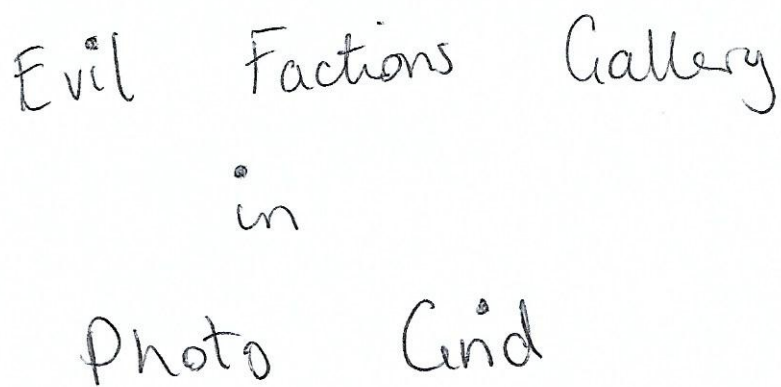 Evil Factions Gallery
in
Photo Grid